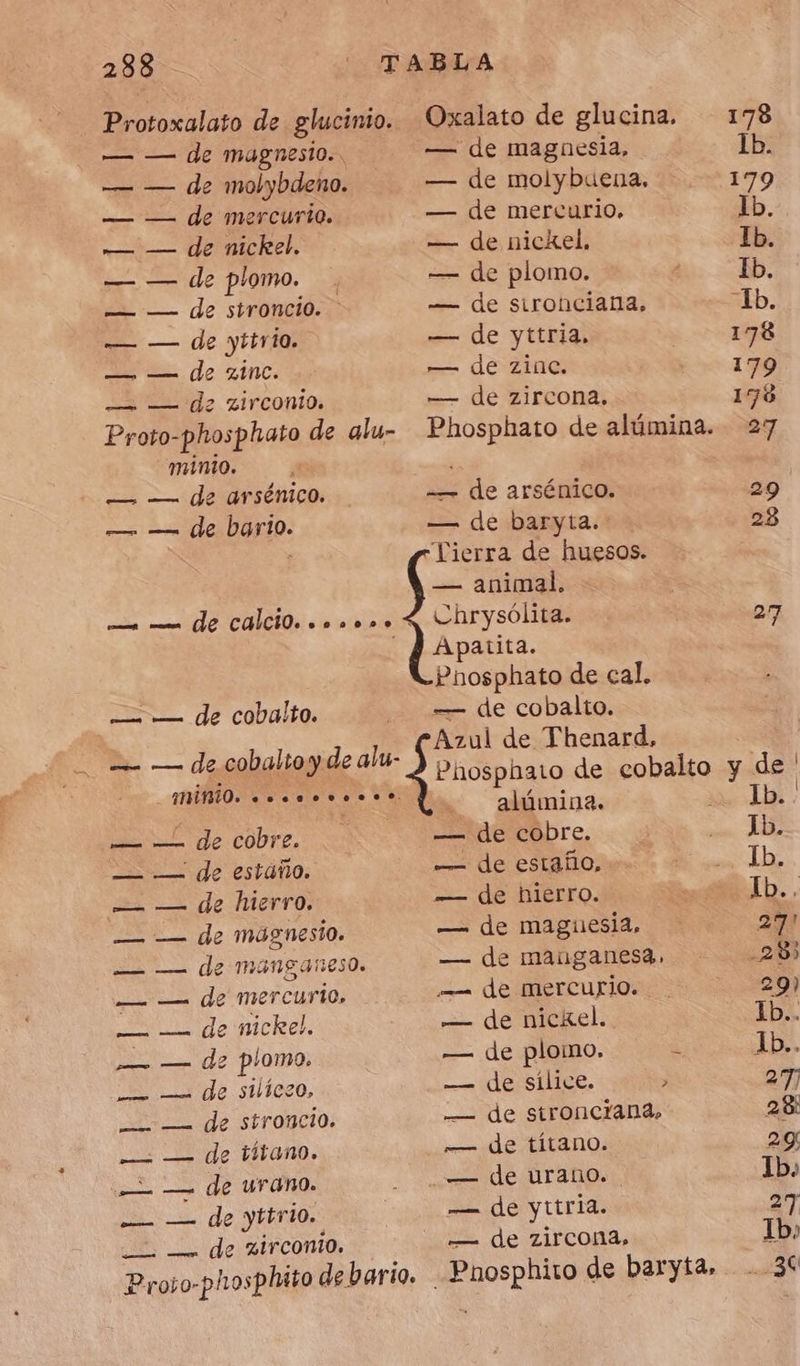 288 TABLA
Protoxalato de glucinio. Oxalato de glucina, 178
— — de magnesio. — de magnesia, Ib.
— — de molybdeno. — de molybdena, 179
— — de mercurio. — de mercurio, Ib.
— — de nickel. — de nickel, Ib.
— — de plomo. — de plomo. Ib.
— — de stroncio. — de stronciana, Ib.
— — de yttrio. — de yttria, 178
— — de zinc. — de zinc. 179
— — de zirconio. — de zircona, 178
Proto-phosphato de alu- Phosphato de alúmina. 27
minio.
— — de arsénico. — de arsénico. 29
— — de bario. — de baryta. 28
Tierra de huesos.
— animal.
— — de calcio....... Chrysólita. 27
Apatita.
Phosphato de cal.
— — de cobalto. — de cobalto.
Azul de Thenard,
— — de cobalto y de alu- Phosphato de cobalto y de
minio. ......... alúmina. Ib.
— — de cobre. — de cobre. Ib.
— — de estaño. — de estaño, Ib.
— — de hierro. — de hierro. Ib.
— — de magnesio. — de magnesia, 27
— — de manganeso. — de manganesa, 28
— — de mercurio, — de mercurio. 29
— — de nickel. — de nickel. Ib.
— — de plomo. — de plomo. Ib.
— — de silíceo, — de sílice. 27
— — de stroncio. — de stronciana, 28
— — de títano. — de títano. 29
— — de urano. — de urano. Ib.
— — de yttrio. — de yttria. 27
— — de zirconio. — de zircona, Ib.
Proto-phosphito de bario. Phosphito de baryta, 30